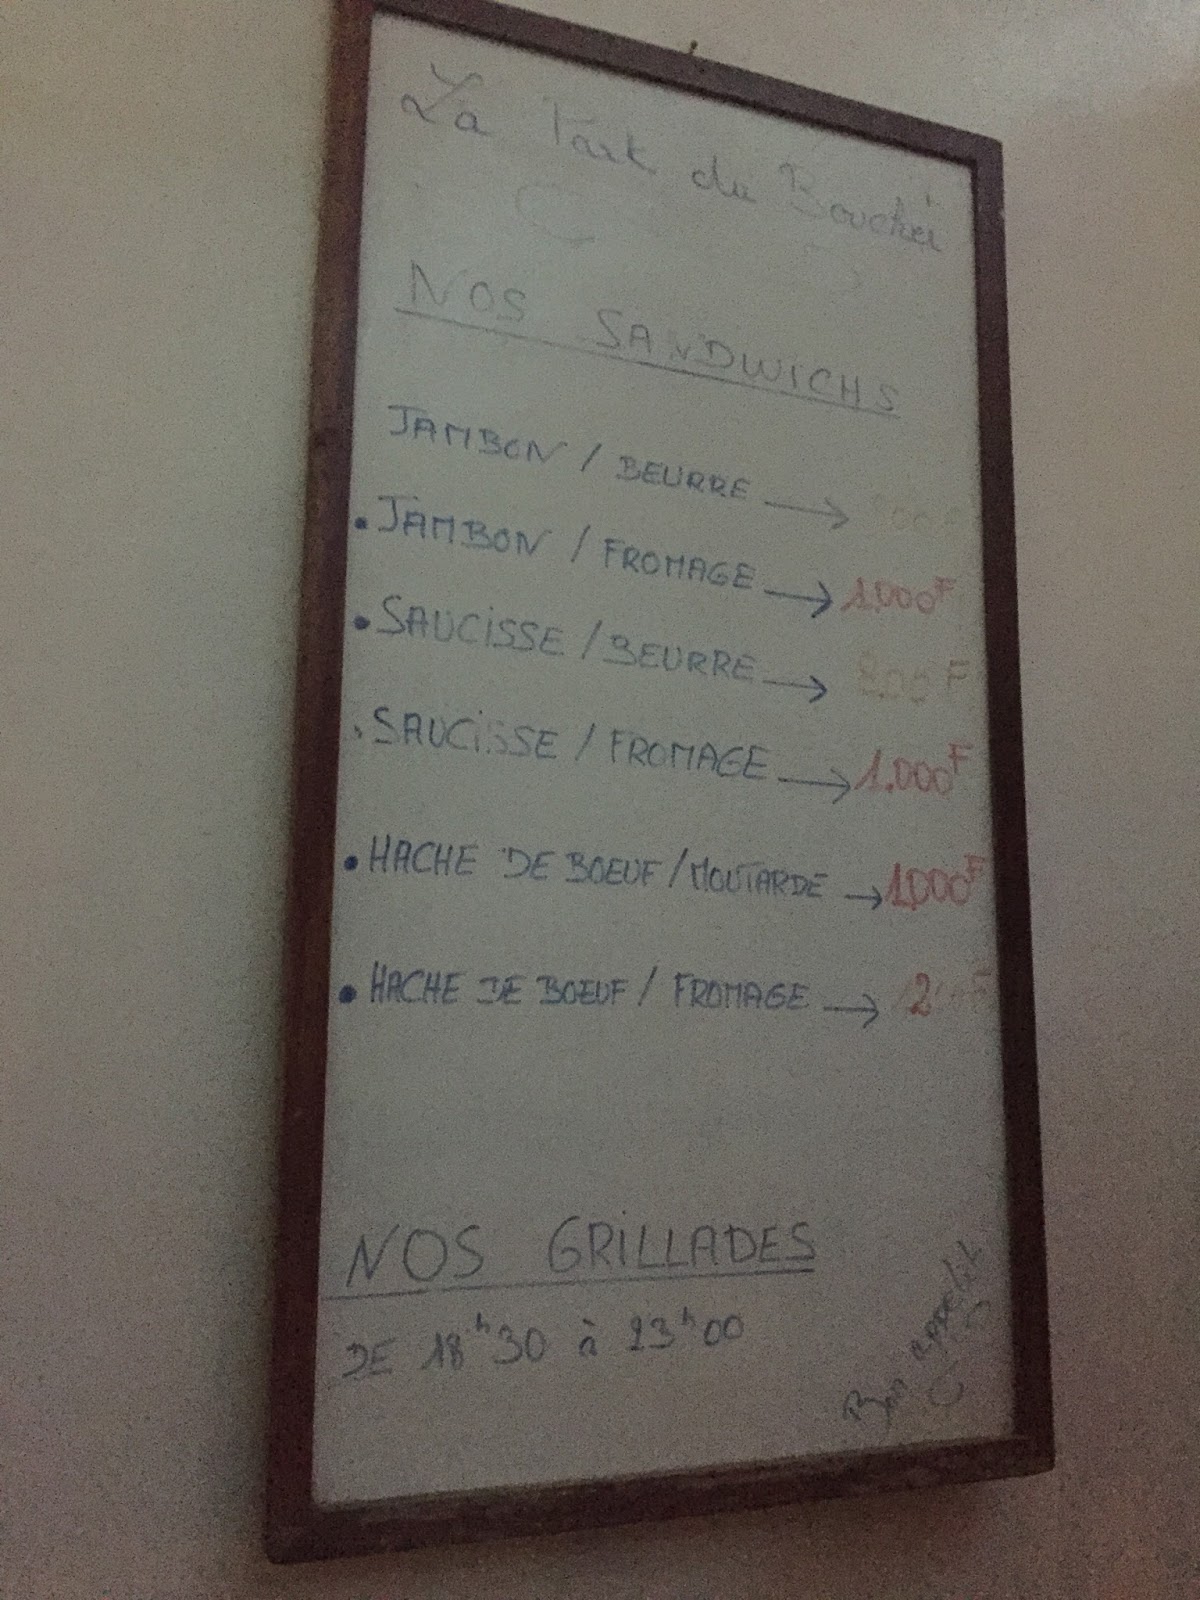 La Part du Boucher
NOS SANDWICHS
JAMBON / BEURRE →
• JAMBON / FROMAGE → 1.000F
• SAUCISSE / BEURRE → 800 F
• SAUCISSE / FROMAGE → 1.000F
• HACHE DE BOEUF / MOUTARDE → 1.000F
• HACHE DE BOEUF / FROMAGE →
NOS GRILLADES
DE 18h30 à 23h00
Bon appétit